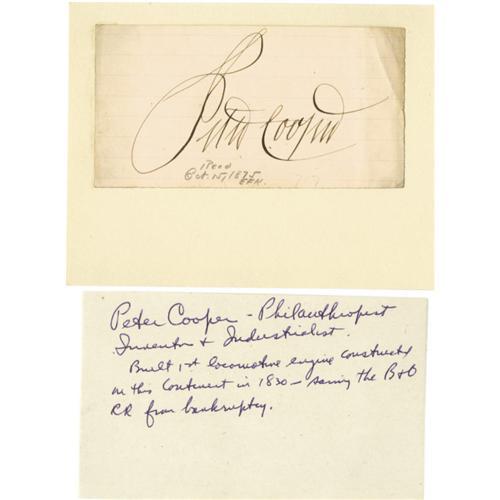 Peter Cooper
Recd
Oct. 15, 1875
EFH.
Peter Cooper - Philanthropist
Inventor + Industrialist.
Built 1st locomotive engine constructed
on this Continent in 1830 - saving the B+O
RR from bankruptcy.